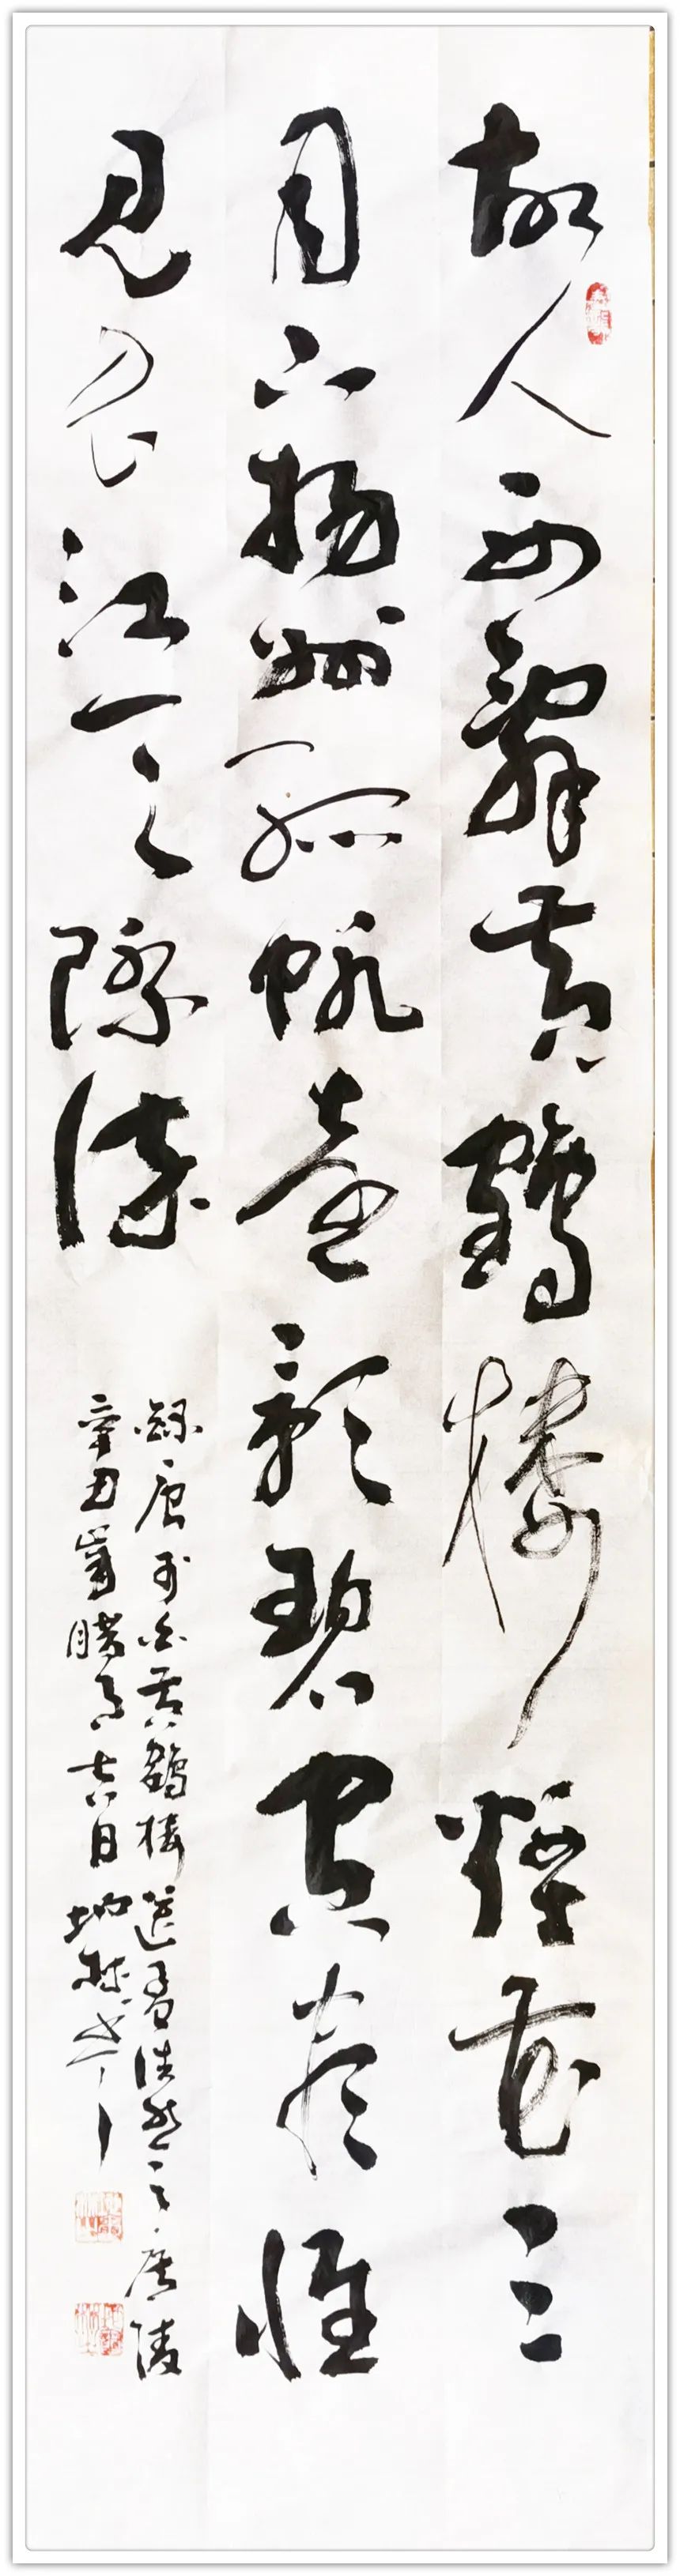 故人西辞黄鹤楼烟花三
月下扬州孤帆远影碧空尽惟
见长江天际流
录唐李白黄鹤楼送孟浩然之广陵
辛丑岁腊月十八日